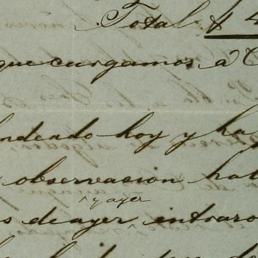 Total $ 4
que cargamos á C
ndeado hoy y ha
observacion hab
y ayer
s de ayer entraro